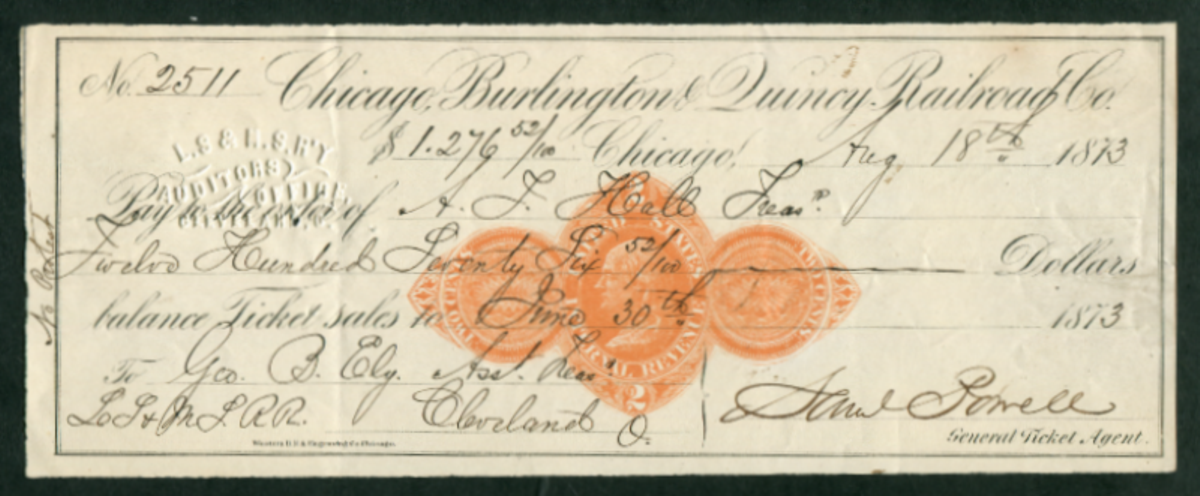 No. 2511 Chicago, Burlington & Quincy Railroad Co.
$ 1.276 52/100 Chicago, Aug 18th 1873
L.S & M.S.R'Y
AUDITORS OFFICE,
CLEVELAND, O.
Pay to the order of A. T. Hall Treasr.
Twelve Hundred Seventy Six 52/100 Dollars
balance Ticket sales to June 30th 1873
To Geo. B. Ely. Asst. Treasr.
L S & M S. R R. Cleveland O.
Saml Powell
General Ticket Agent.
No Protest
UNITED STATES
INTERNAL REVENUE
TWO CENTS
TWO CENTS
2